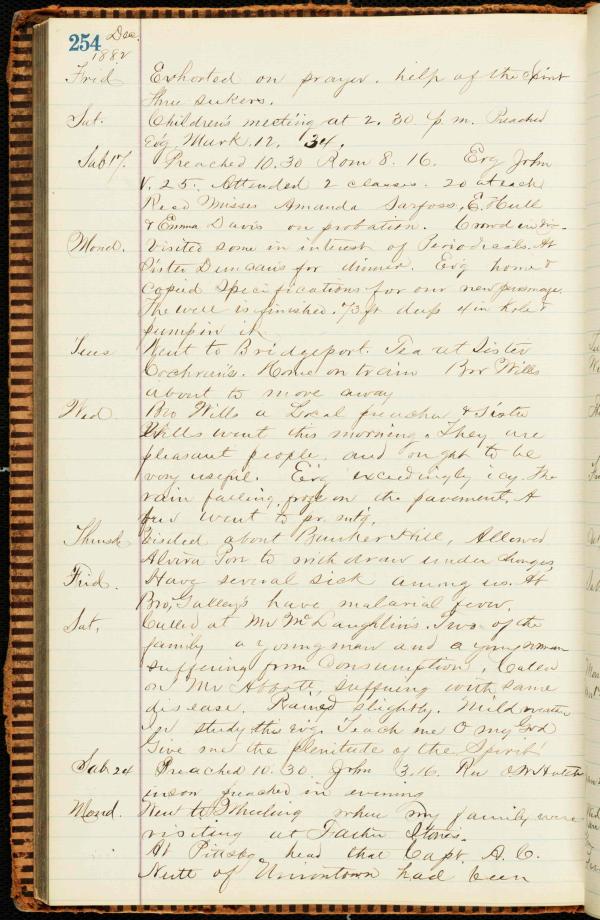 254 Dec.
1882
Frid Exhorted on prayer. help of the Spirit
three seekers.
Sat. Children's meeting at 2.30 p.m. Preached
Evg. Mark. 12. 34.
Sab 17. Preached 10.30 Rom 8. 16. Evg John
V. 25. Attended 2 classes. 20 at each
Recd Misses Amanda Sarfoss, E. Hull
& Emma Davis on probation. Crowd in
Mond. Visited some in interest of Periodicals. At
Sister Duncan's for dinner. Evg home &
Copied Specifications for our new parsonage.
The well is finished. 73 ft deep 4 in hole &
pump in it.
Tues Went to Bridgeport. Tea at Sister
Cochran's. Home on train Bro Wills
about to move away
Wed Bro Wills a Local preacher & Sister
Wills went this morning. They are
pleasant people, and ought to be
very useful. Evg exceedingly icy. The
rain falling froze on the pavement. A
few went to pr. mt'g.
Thursd Visited about Bunker Hill, Allowed
Alvira to withdraw under charges
Frid. Have several sick among us. At
Bro, Galley's have malarial fever.
Sat, Called at Mr McLaughlin's. Two of the
family a young man and a young woman
suffering from Consumption. Called
on Mr Abbott, suffering with same
disease. Rained slightly. Mild weather
In study this Evg. Teach me O my God
Give me the plenitude of the Spirit!
Sab 24 Preached 10.30 John 3.16. Rev Hutch
inson preached in evening
Mond. Went to Wheeling where my family were
visiting at Father Stone's.
At Pittsbg head that Capt. A. C.
Nutt of Uniontown had been